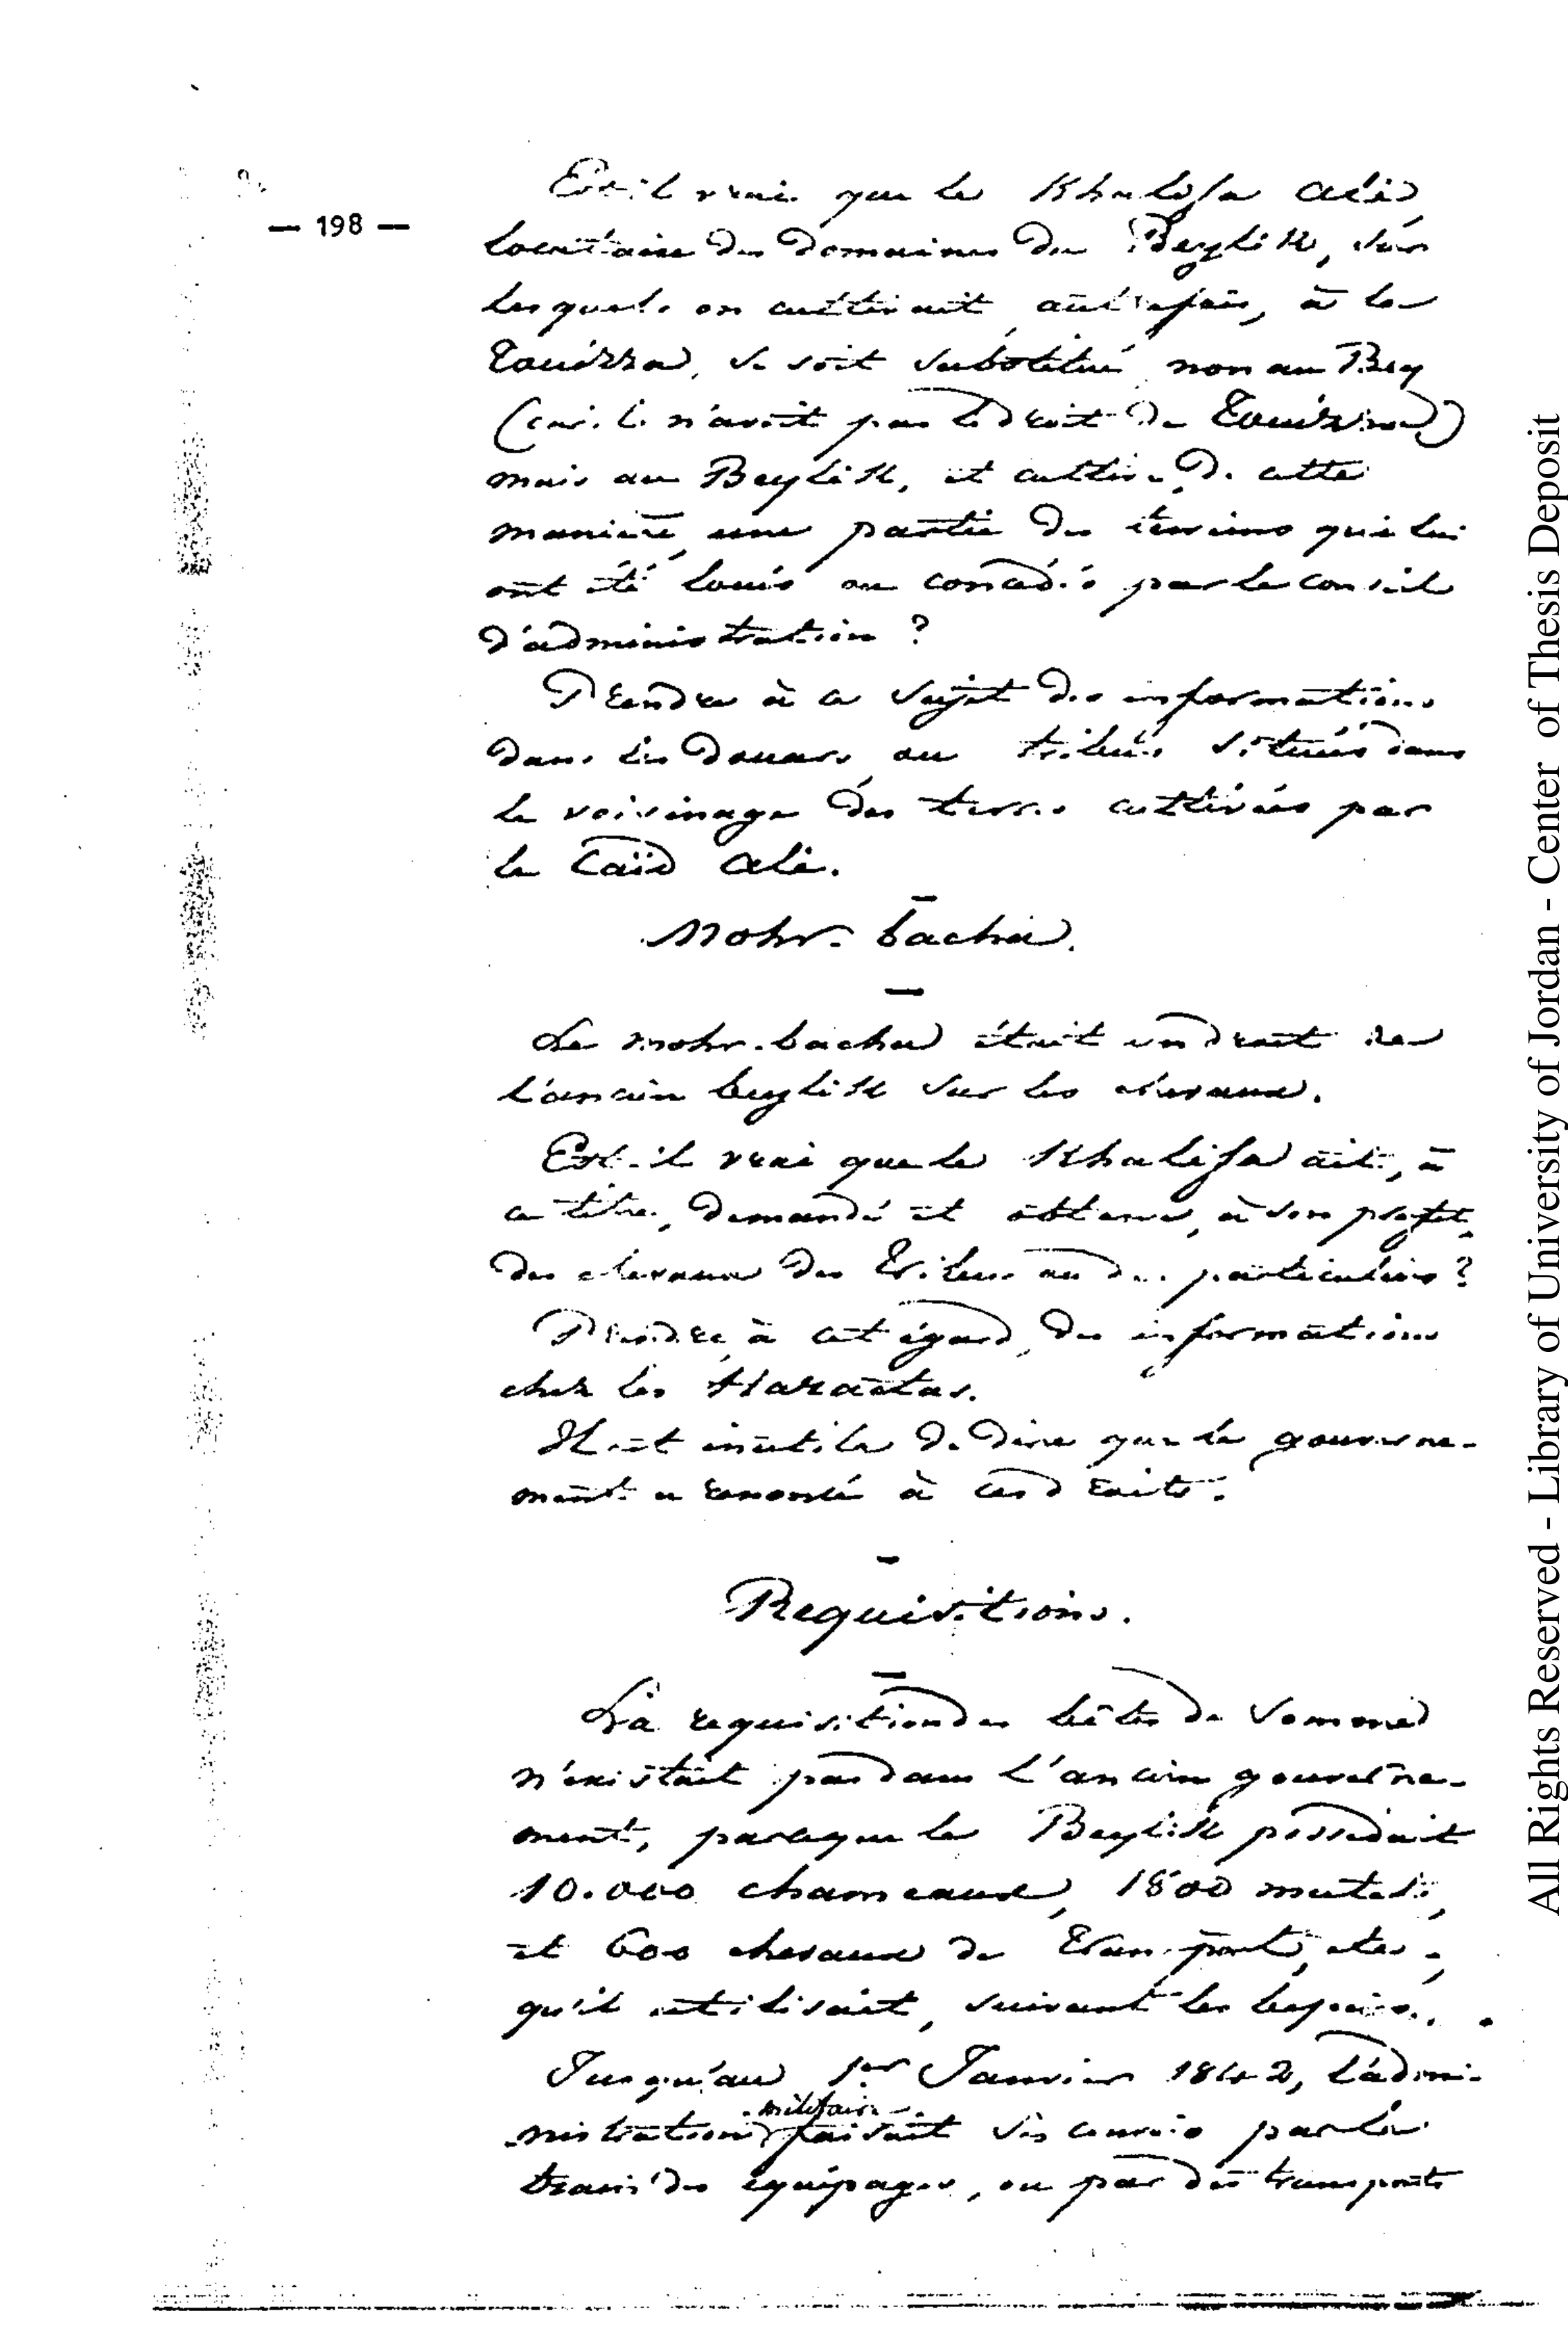 — 198 —
Est-il vrai que le Khalifa Ali,
locataire des domaines du Beylik, sur
lesquels on cultivait autrefois, à la
Touizza, se soit substitué non au Bey
(car il n'avait pas le droit de Touizza)
mais au Beylik, et cultive, de cette
manière, une partie des terrains qui lui
ont été loués ou concédés par le conseil
d'administration ?
Prendre à ce sujet des informations
dans les douars ou tribus situés dans
le voisinage des terres cultivées par
le Caïd Ali.
Mohr-bacha.
Le mohr-bacha était un droit de
l'ancien beylik sur les chevaux.
Est-il vrai que le Khalifa ait, à
ce titre, demandé et obtenu, à son profit,
des chevaux des Tribus ou des particuliers ?
Prendre, à cet égard, des informations
chez les Haractas.
Il est inutile de dire que le gouverne-
ment a renoncé à ces droits.
Requisitions.
La requisition des bêtes de somme
n'existait pas dans l'ancien gouverne-
ment, parceque le Beylik possédait
10.000 chameaux, 1800 mulets,
et 600 chevaux de Transport, etc.,
qu'il utilisait, suivant les besoins.
Jusqu'au 1er Janvier 1842, l'admi-
militaire
nistration faisait ses convois par le
train des équipages, ou par des transports
All Rights Reserved - Library of University of Jordan - Center of Thesis Deposit